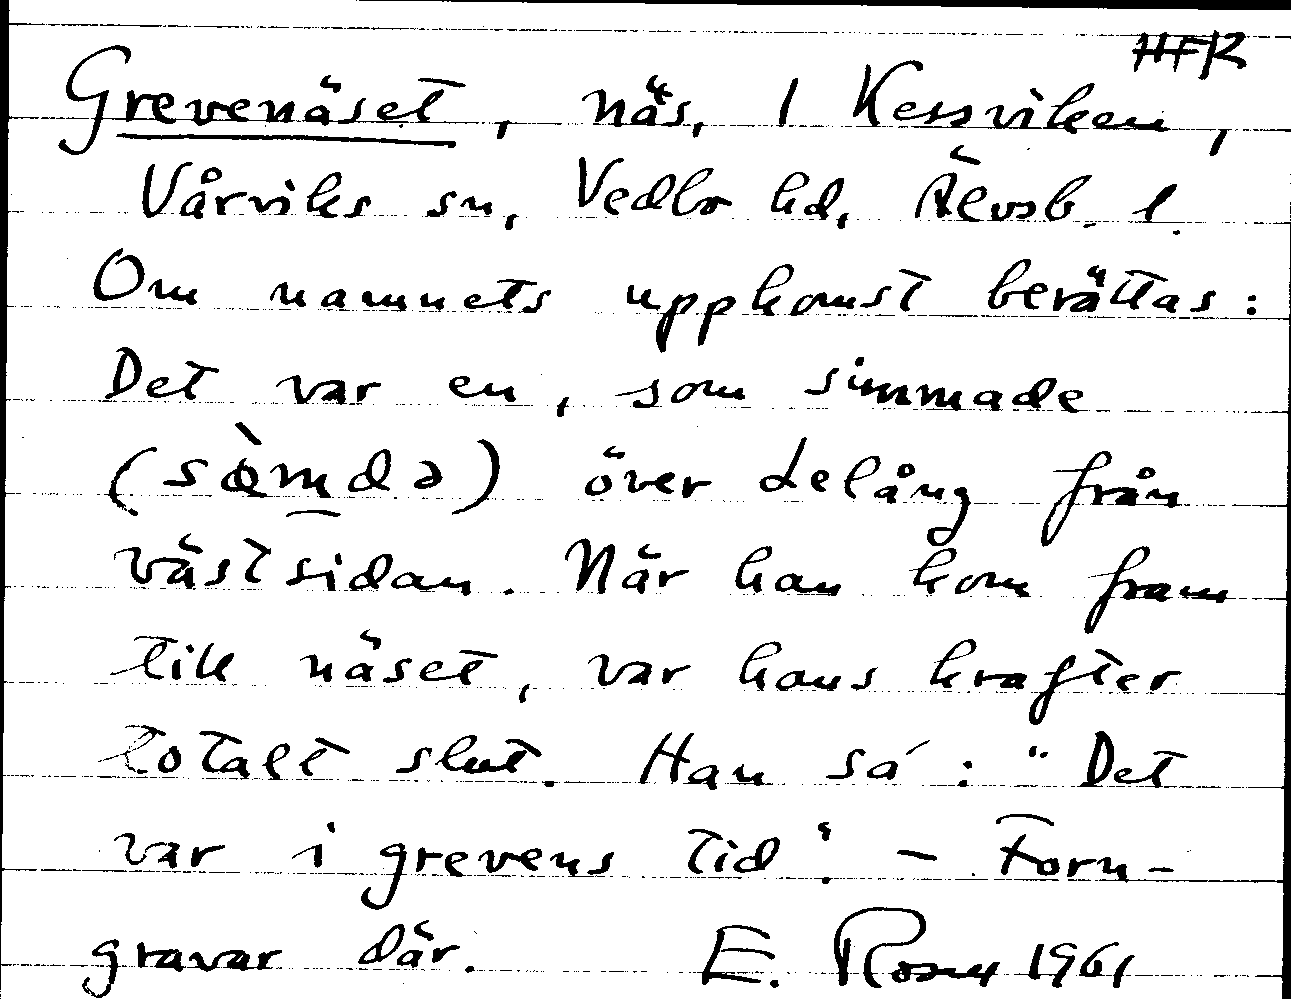 HFR
Grevenäset, näs, 1 Kessviken,
Vårviks sn, Vedbo hd, Älvsb. l.
Om namnets uppkomst berättas:
Det var en, som simmade
(sæ̀m̲də) över Lelång från
västsidan. När han kom fram
till näset, var hans krafter
totalt slut. Han sa´: "Det
var i grevens tid". – Forn-
gravar där. E. 1961